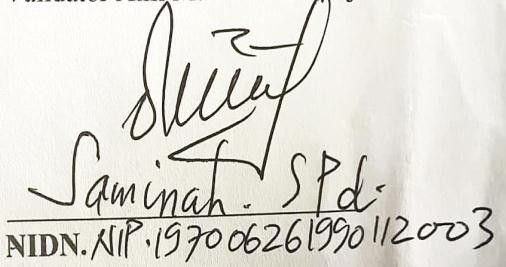 Saminah. S Pd.
NIDN. NIP. 197006261990112003